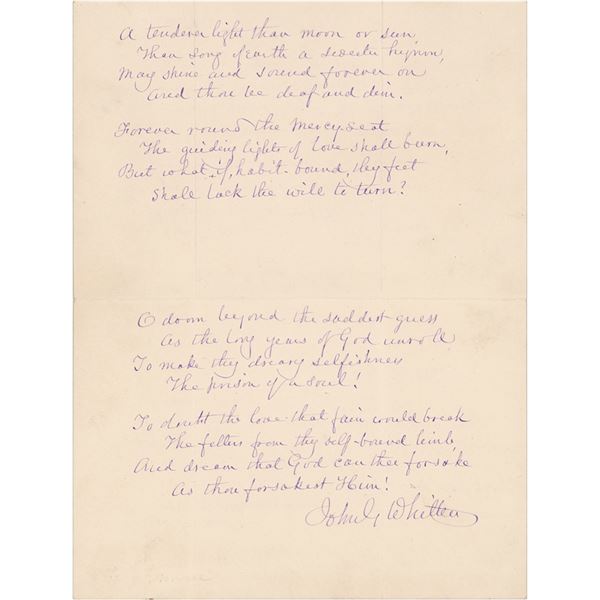 A tenderer light than moon or sun,
Than song of Earth a sweeter hymn,
May shine and sound forever on
And thou be deaf and dim.
Forever round the Mercy Seat
The guiding lights of Love shall burn,
But what if, habit-bound, thy feet
Shall lack the will to turn?
O doom beyond the saddest guess
As the long years of God unroll
To make thy dreary selfishness
The prison of a soul!
To doubt the love that fain would break
The fetters from thy self-bound limb,
And dream that God can thee forsake
As thou forsakest Him!
John G Whittier